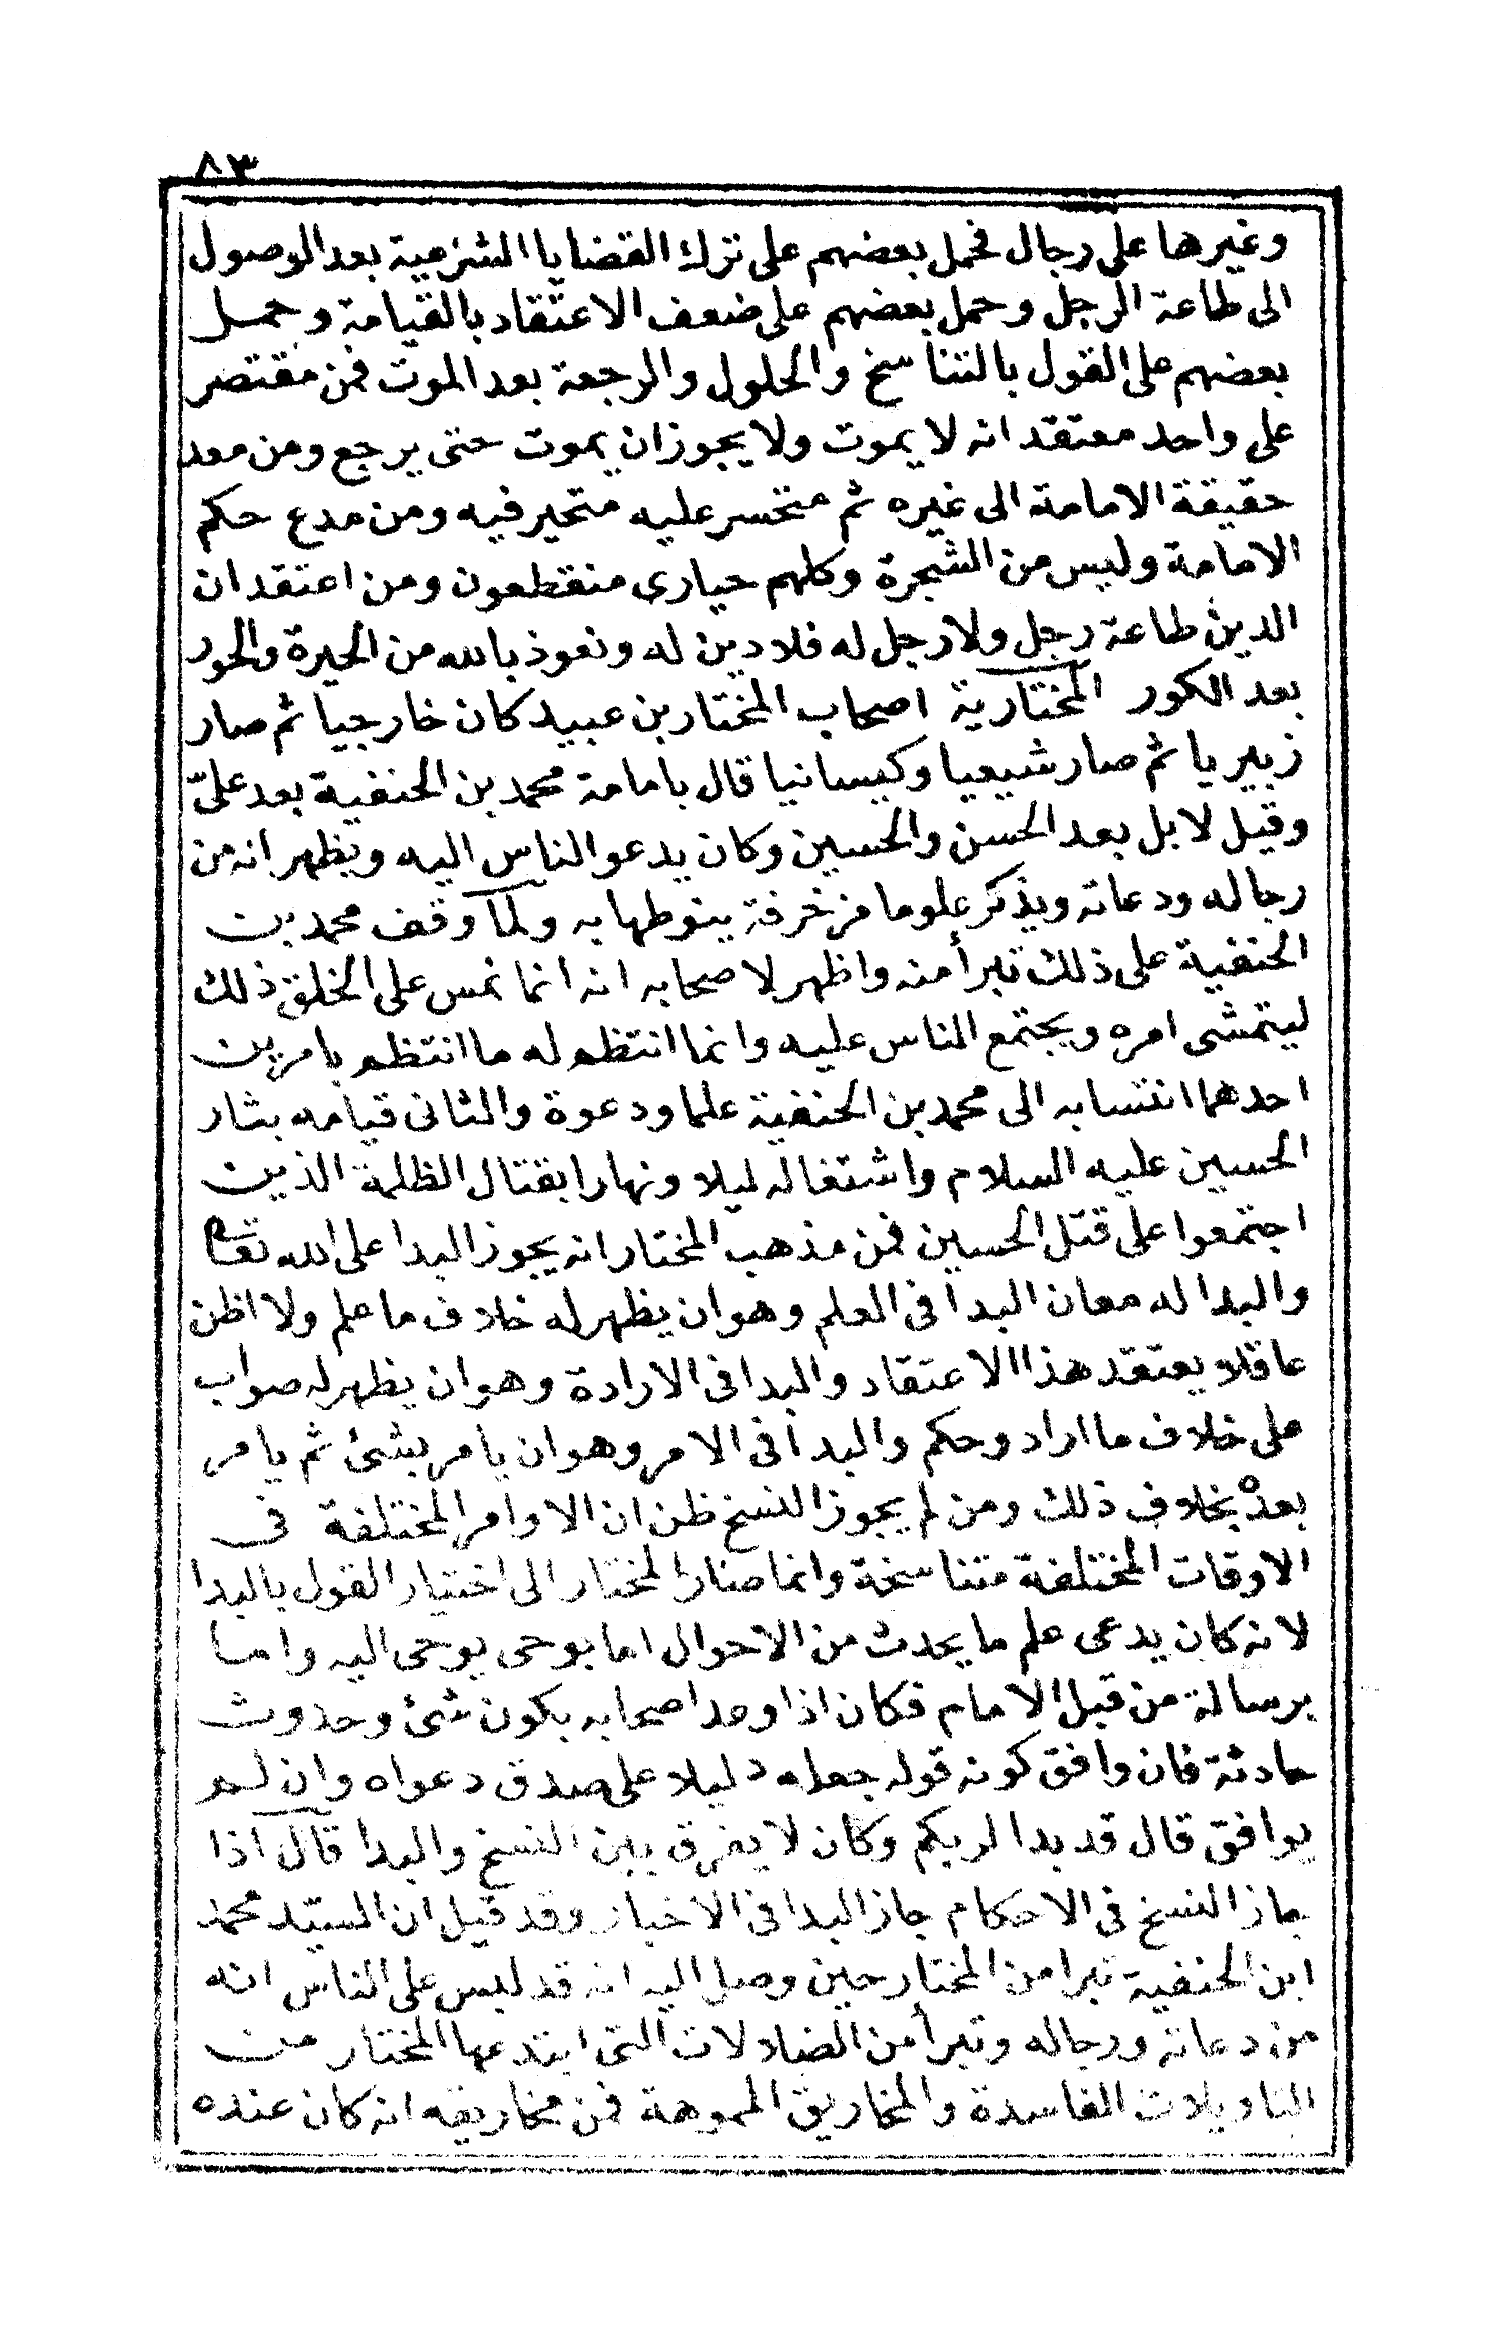 ٨٣
وغيرها على رجال فحمل بعضهم على ترك القضايا الشرعية بعد الوصول
الى طاعة الرجل وحمل بعضهم على ضعف الاعتقاد بالقيامة وحمل
بعضهم على القول بالتناسخ والحلول والرجعة بعد الموت فمن مقتصر
على واحد معتقد انه لا يموت ولا يجوز ان يموت حتى يرجع ومن معد
حقيقة الامامة الى غيره ثم متحسر عليه متحير فيه ومن مدع حكم
الامامة وليس من الشجرة وكلهم حيارى منقطعون ومن اعتقد ان
الدين طاعة رجل ولا رجل له فلا دين له ونعوذ بالله من الحيرة والحور
بعد الكور المختارية اصحاب المختار بن عبيد كان خارجيا ثم صار
زبيريا ثم صار شيعيا وكيسانيا قال بامامة محمد بن الحنفية بعد علىّ
وقيل لا بل بعد الحسن والحسين وكان يدعو الناس اليه ويظهر انه من
رجاله ودعاته ويذكر علوما مزخرفة ينوطها به ولما وقف محمد بن
الحنفية على ذلك تبرأ منه واظهر لاصحابه انه انما نمس على الخلق ذلك
ليتمشى امره ويجتمع الناس عليه وانما انتظم له ما انتظم بامرين
احدهما انتسابه الى محمد بن الحنفية علما ودعوة والثانى قيامه بثار
الحسين عليه السلام واشتغاله ليلا ونهارا بقتال الظلمة الذين
اجتمعوا على قتل الحسين فمن مذهب المختار انه يجوز البدا على الله تعا
والبدا له معان البدا فى العلم وهو ان يظهر له خلاف ما علم ولا اظن
عاقلا يعتقد هذا الاعتقاد والبدا فى الارادة وهو ان يظهر له صواب
على خلاف ما اراد وحكم والبدأ فى الامر وهو ان يامر بشئ ثم يامر
بعده بخلاف ذلك ومن لم يجوز النسخ ظن ان الاوامر المختلفة فى
الاوقات المختلفة متناسخة وانما صار المختار الى اختيار القول بالبدا
لانه كان يدعى علم ما يحدث من الاحوال اما بوحى يوحى اليه واما
برسالة من قبل الامام فكان اذا وعد اصحابه بكون شئ وحدوث
حادثة فان وافق كونه قوله جعله دليلا على صدق دعواه وان لم
يوافق قال قد بدا لربكم وكان لا يفرق بين النسخ والبدا قال اذا
جاز النسخ فى الاحكام جاز البدا فى الاخبار وقد قيل ان السيّد محمد
ابن الحنفية تبرا من المختار حين وصل اليه انه قد لبس على الناس انه
من دعاته ورجاله وتبرأ من الضلالات التى ابتدعها المختار من
التاويلات الفاسدة والمخاريق المموهة فمن مخاريقه انه كان عنده